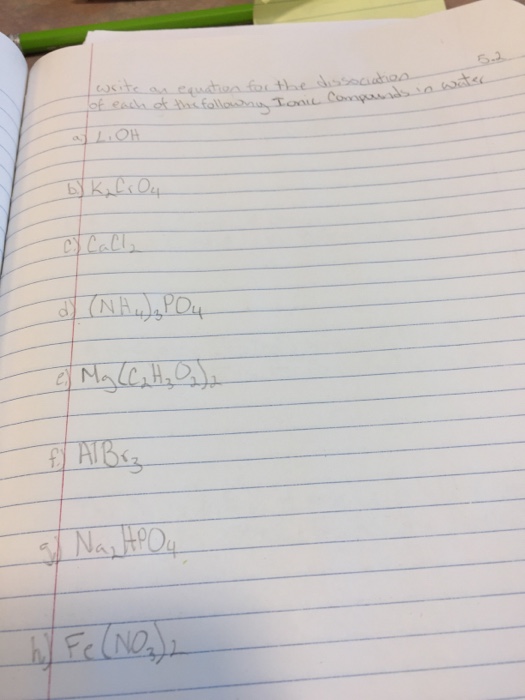 5.2
write an equation for the dissociation
of each of the following Ionic Compounds in water
a) LiOH
b) K₂CrO₄
c) CaCl₂
d) (NH₄)₃PO₄
e) Mg(C₂H₃O₂)₂
f) AlBr₃
g) Na₂HPO₄
h) Fe(NO₃)₂